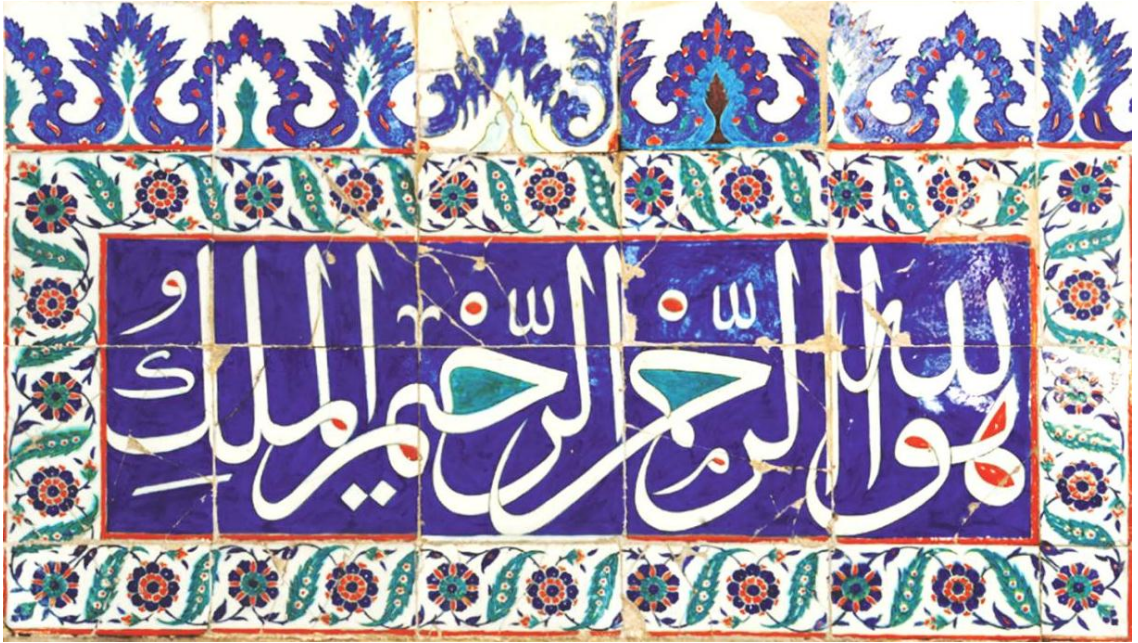 هو الله الرحمن الرحيم الملك